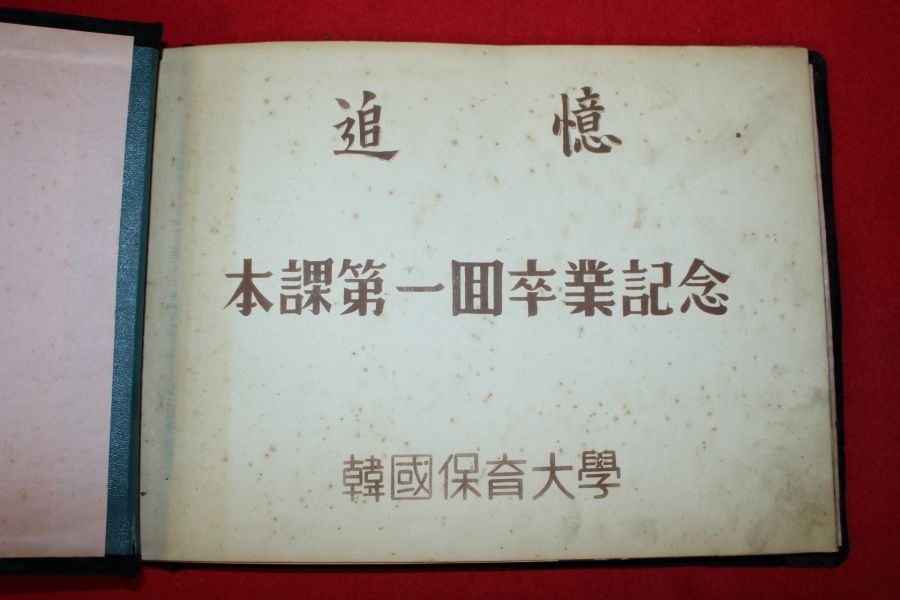 追憶
本課第一回卒業記念
韓國保育大學